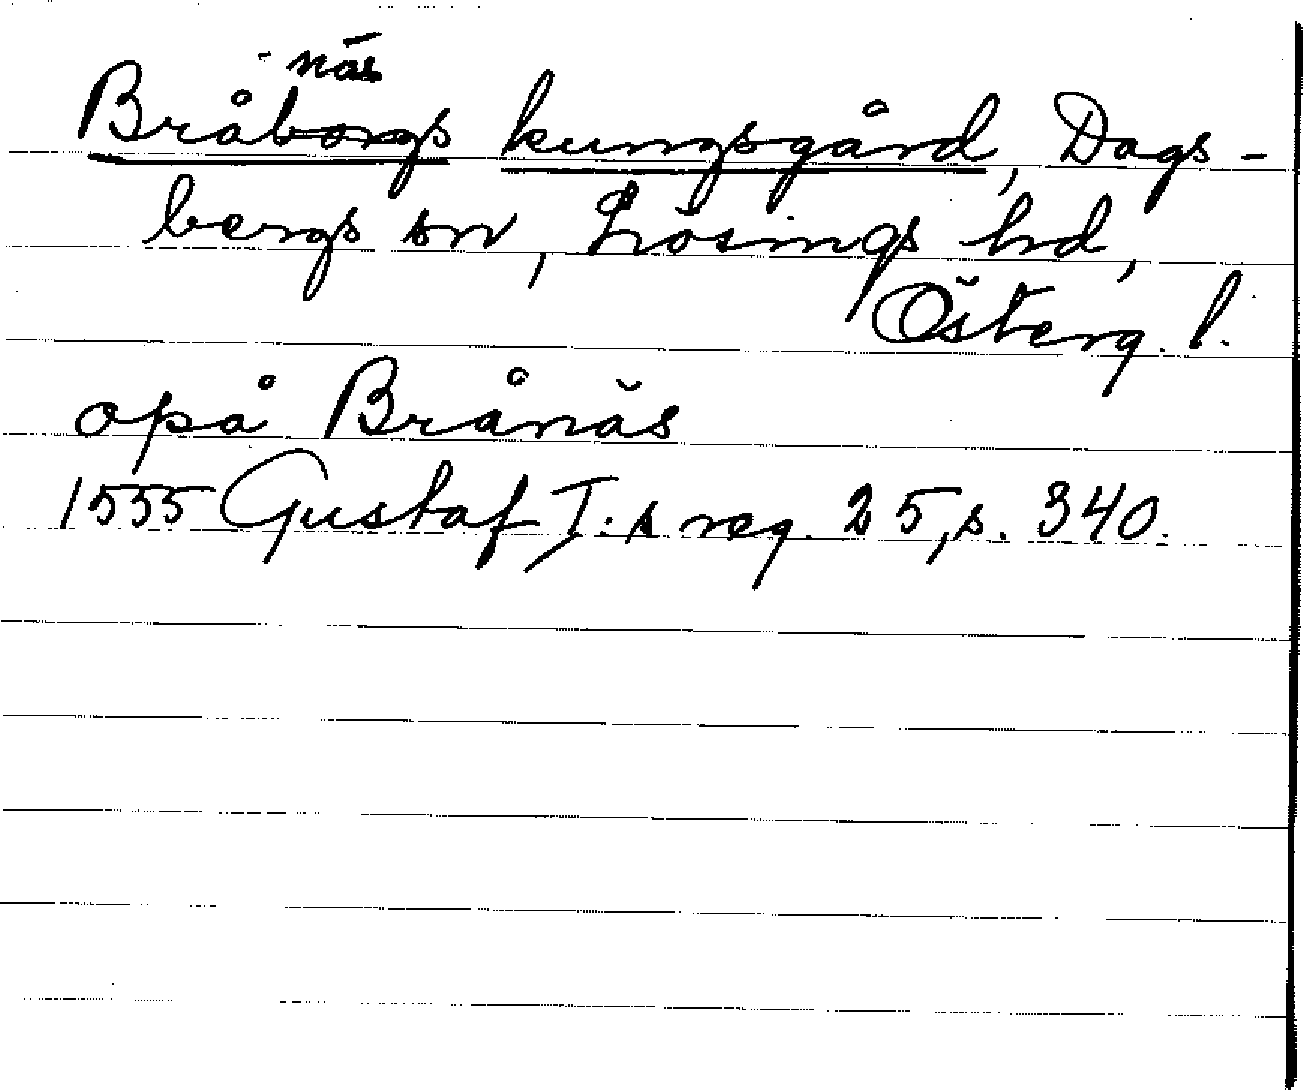 -näs
Bråborgs kungsgård, Dags-
bergs sn, Lösings hd,
Österg. l.
opå Brånäs
1555 Gustaf I:s reg. 25, s. 340.